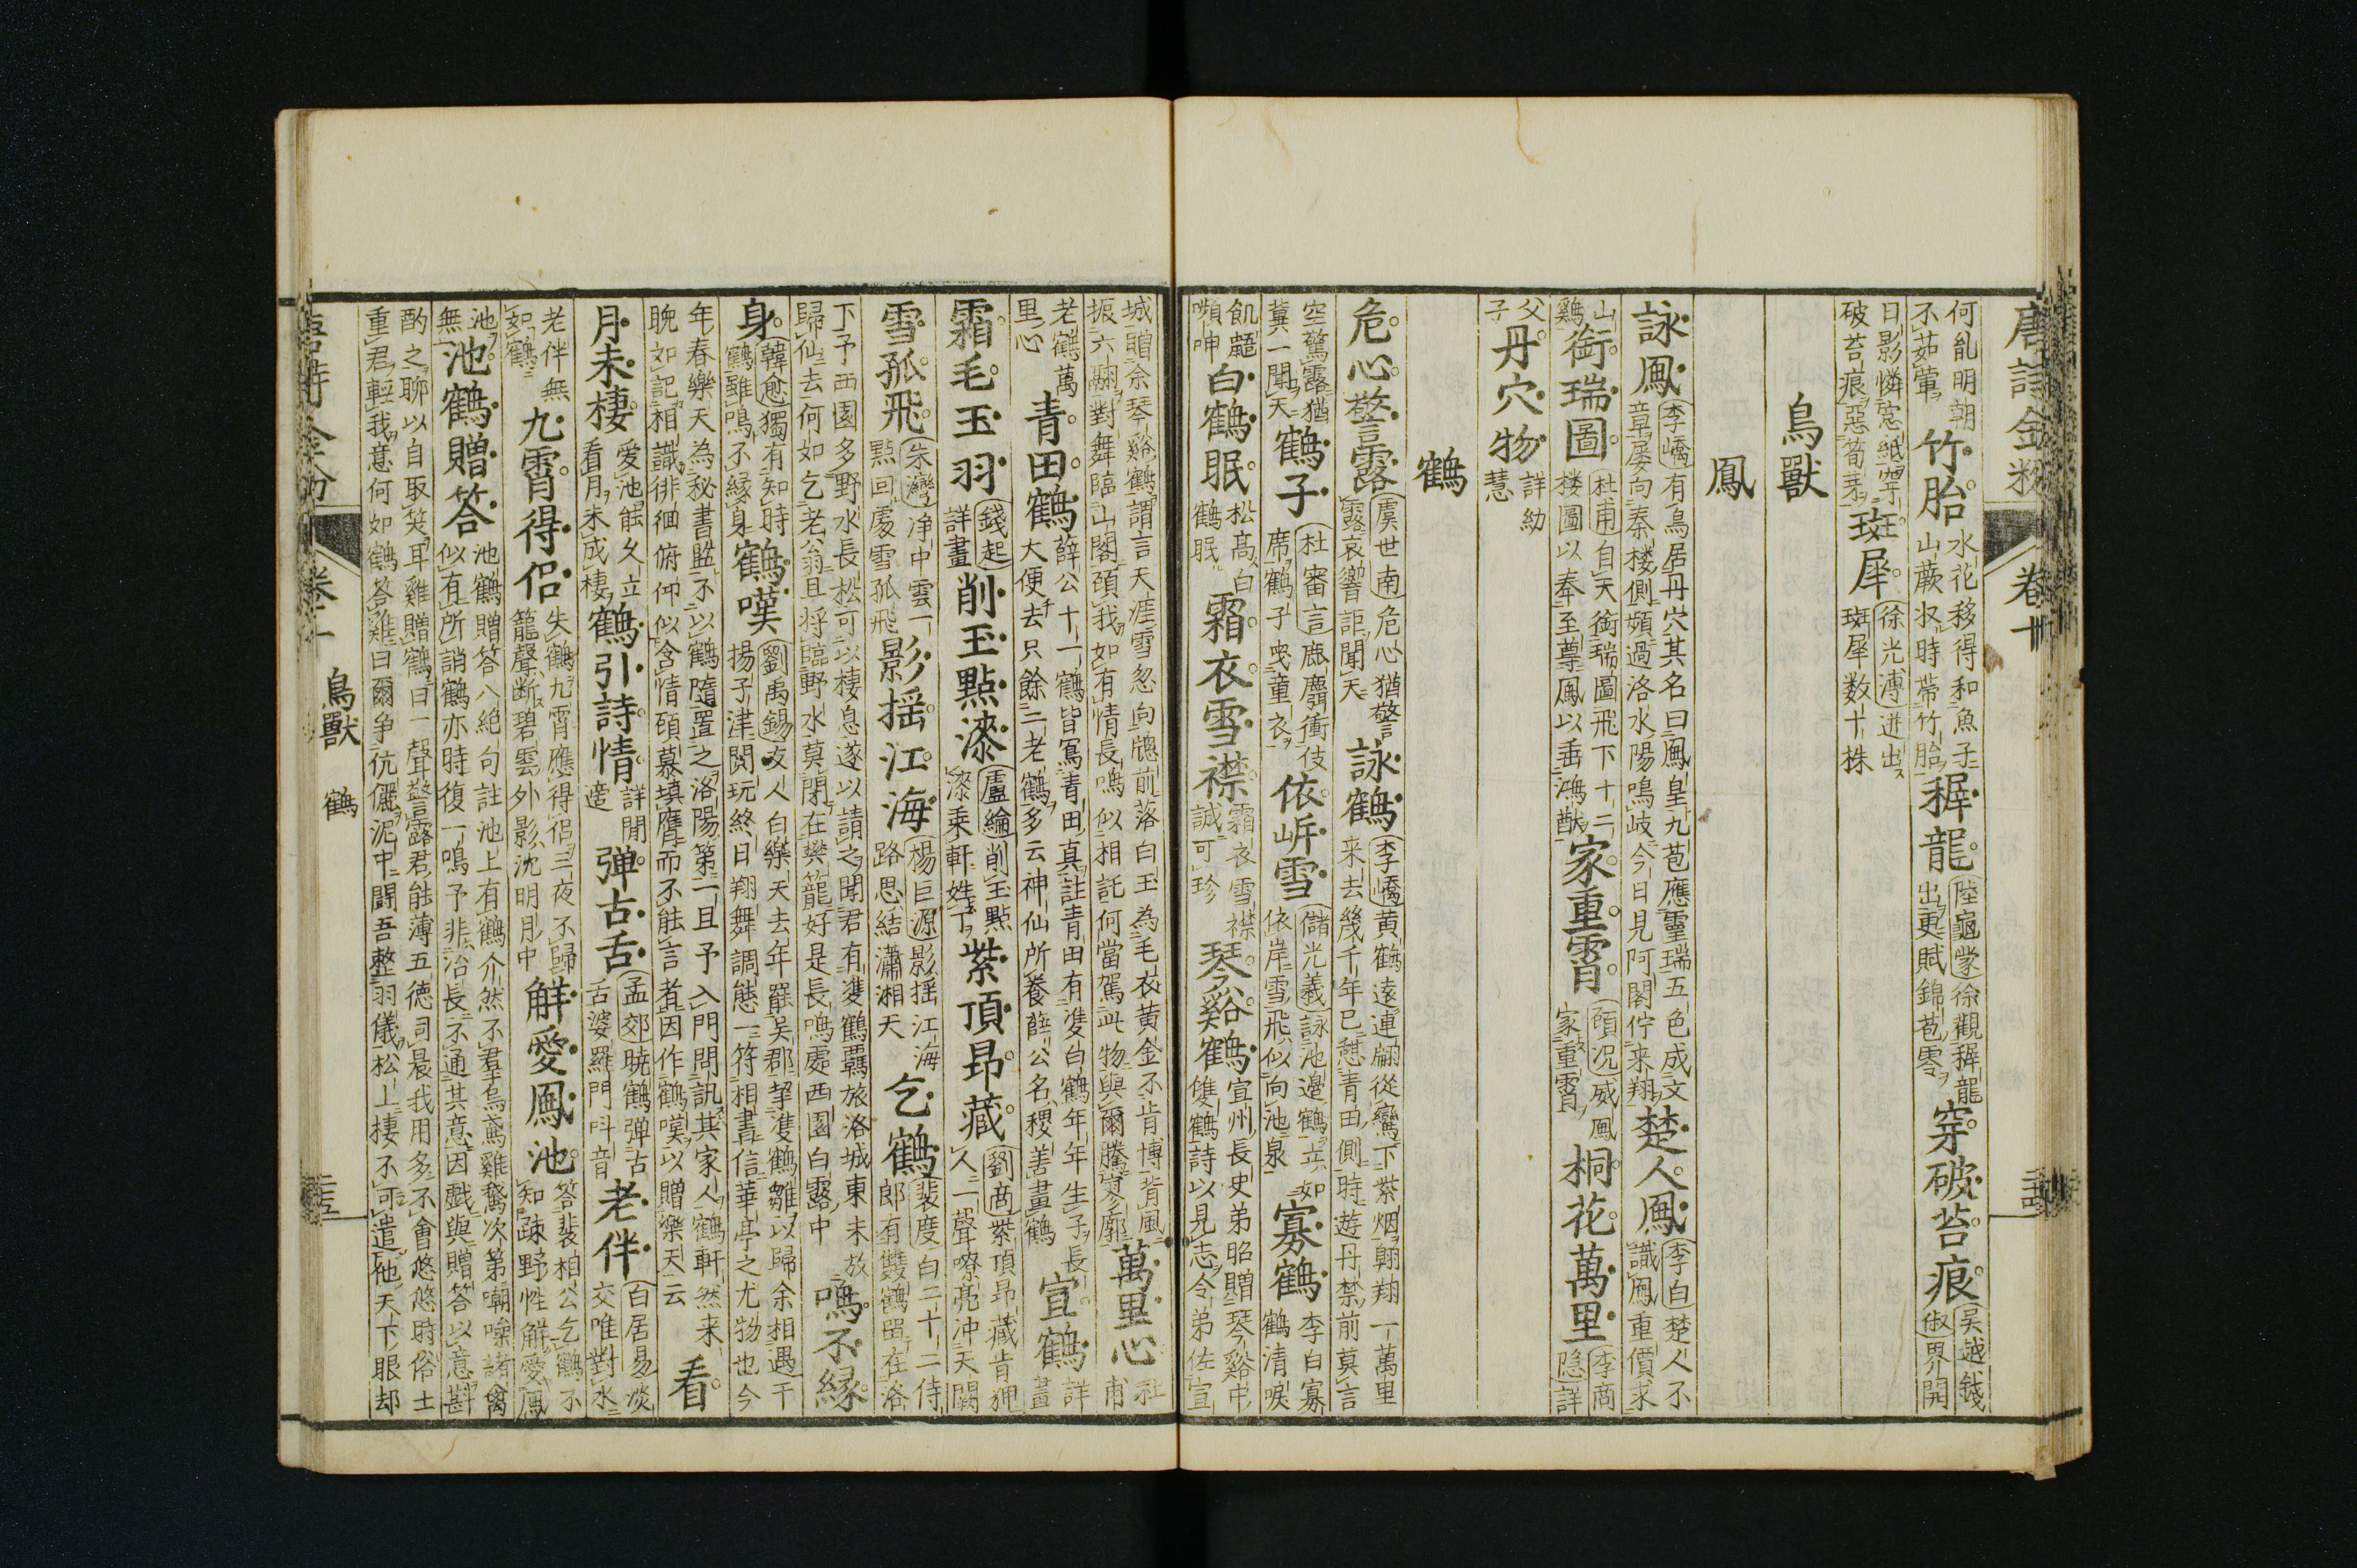 唐詩金粉 卷十
何亂明朝不茹葷 竹胎 水花移得和魚子山蕨収時帶竹胎 穉龍 陸龜蒙徐觀穉龍出更賦錦苞零 穿破苔痕 吳越錢俶畀開
日影憐窓紙穿破苔痕惡筍芽 斑犀 徐光溥迸出斑犀数十株
鳥獸
鳳
詠鳳 李嶠有鳥居丹穴其名曰鳳皇九苞應靈瑞五色成文章屡向秦楼側頻過洛水陽鳴岐今日見阿閣佇来翔 楚人鳳 李白楚人不識鳳重價求
山鷄 銜瑞圖 杜甫自天銜瑞圖飛下十二楼圖以奉至尊鳳以垂鴻猷 家重霄 顧况威鳳家重霄 桐花萬里 李商隠詳
父子 丹穴物 詳幼慧
鶴
危心警露 虞世南危心猶警露哀響詎聞天 詠鶴 李嶠黄鶴遠連翩從鸞下紫烟翺翔一萬里来去幾千年已憩青田側時遊丹禁前莫言
空驚露猶冀一聞天 鶴子 杜審言鹿麛衝伎席鶴子曵童衣 依岍雪 儲光羲詠池邊鶴立如依岸雪飛似向池泉 寡鶴 李白寡鶴清唳
飢鼯嚬呻 白鶴眠 松髙白鶴眠 霜衣雪襟 霜衣雪襟誠可珍 琴谿鶴 宣州長史弟昭贈琴谿中雙鶴詩以見志令弟佐宣
城贈余琴谿鶴謂言天涯雪忽向牕前落白玉為毛衣黄金不肯博背風振六翮對舞臨山閣顧我如有情長鳴似相託何當駕此物與爾騰寥廓 萬里心 杜甫
老鶴萬里心 青田鶴 薛公十一鶴皆寫青田真註青田有雙白鶴年年生子長大便去只餘二老鶴多云神仙所養薛公名稷善畫鶴 宣鶴 詳畫
霜毛玉羽 錢起詳畫 削玉點漆 盧綸削玉點漆乗軒姓丁 紫頂昂藏 劉商紫頂昂藏肯狎人一聲嘹亮冲天闕
雪孤飛 朱灣净中雲一點回處雪孤飛 影揺江海 楊巨源影揺江海路思結瀟湘天 乞鶴 裴度白二十二侍郎有雙鶴畱在洛
下予西園多野水長松可以棲息遂以請之聞君有雙鶴羈旅洛城東未放歸仙去何如乞老翁且将臨野水莫閉在樊籠好是長鳴處西園白露中 鳴不縁
身 韓愈獨有知時鶴雖鳴不縁身 鶴嘆 劉禹錫友人白樂天去年罷吳郡挈雙鶴雛以歸余相遇于揚子津閲玩終日翔舞調態一符相書信華亭之尤物也今
年春樂天為秘書監不以鶴隨置之洛陽第一旦予入門問訊其家人鶴軒然来睨如記相識徘徊俯仰似含情顧慕填膺而不能言者因作鶴嘆以贈樂天云 看
月未棲 愛池能久立看月未成棲 鶴引詩情 詳閒適 弾古舌 孟郊暁鶴弾古舌婆羅門呌音 老伴 白居易淡交唯對水
老伴無如鶴 九霄得侶 失鶴九霄應得侶三夜不歸籠聲断碧雲外影沈明月中 解愛鳳池 答裴相公乞鶴不知疎野性解愛鳳
池無 池鶴贈答 池鶴贈答八絶句註池上有鶴介然不羣烏鳶雞鵞次第嘲噪諸禽似有所誚鶴亦時復一鳴予非冶長不通其意因戯與贈答以意斟
酌之聊以自取笑耳雞贈鶴曰一聲警露君能薄五徳司晨我用多不會悠悠時俗士重君軽我意何如鶴答雞曰爾争伉儷泥中闘吾整羽儀松上棲不可遣他天下眼却
鳥獸 鶴